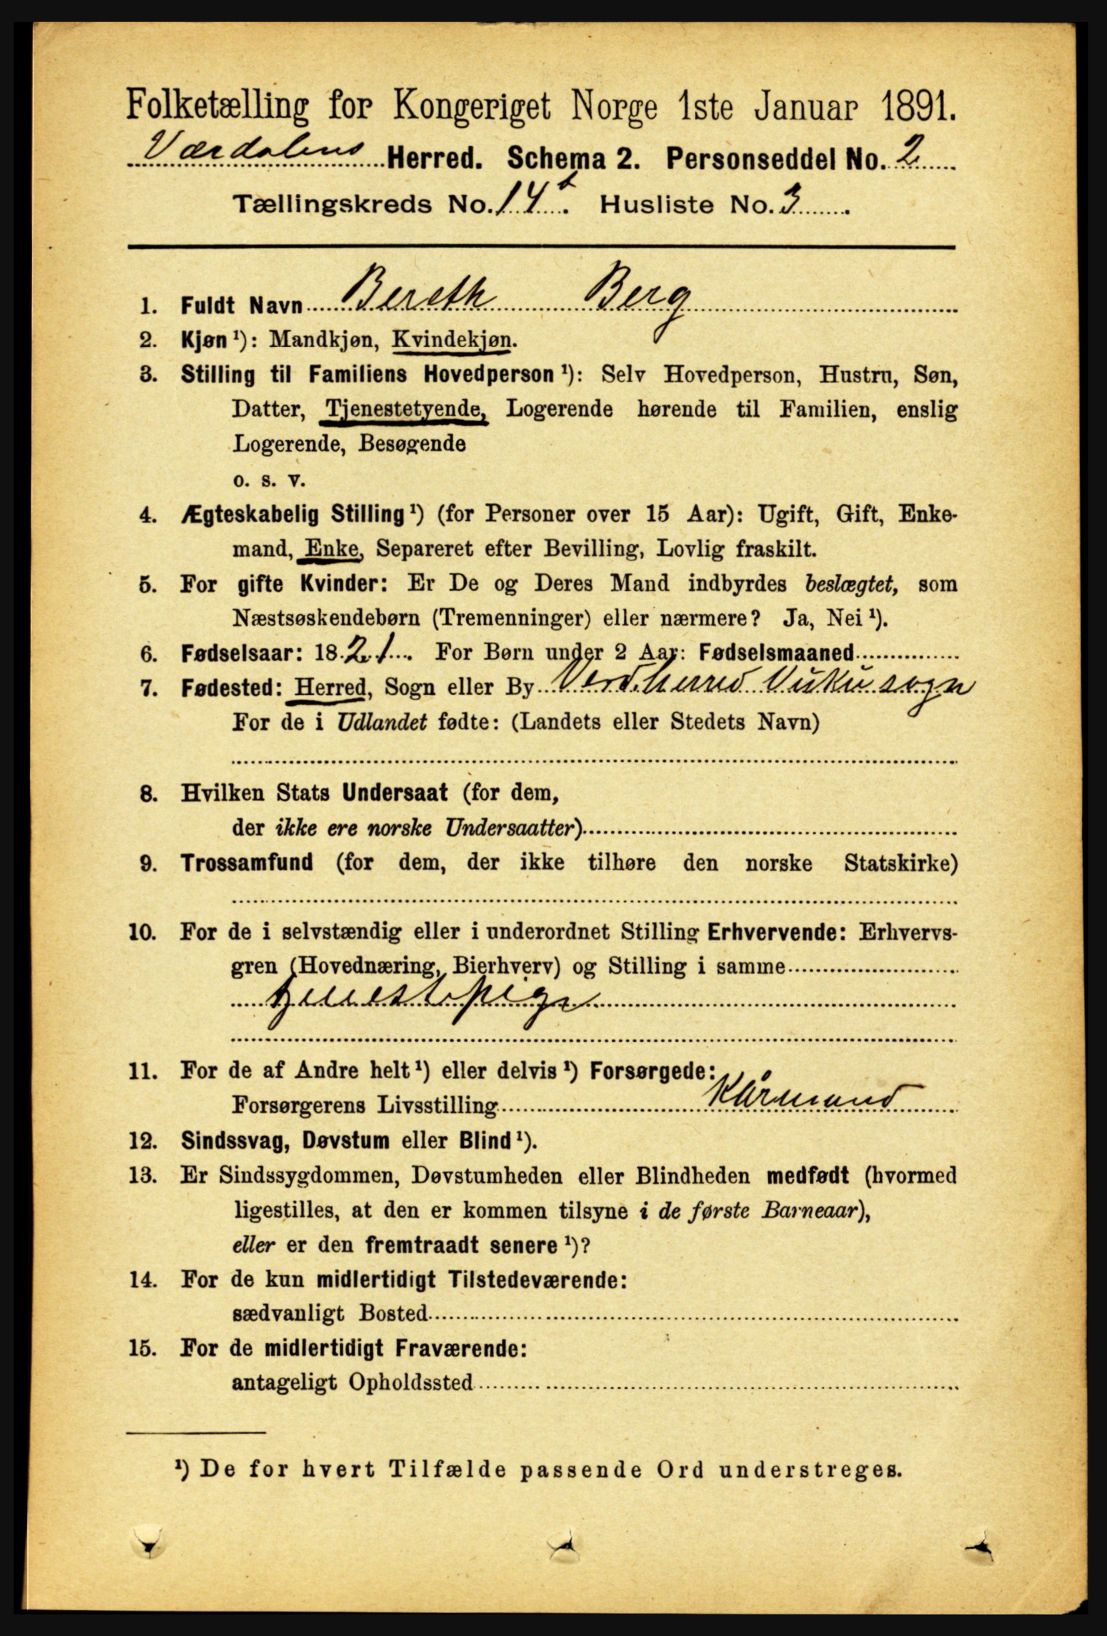 Folketælling for Kongeriget Norge 1ste Januar 1891.
Værdalens Herred. Schema 2. Personseddel No. 2
Tællingskreds No. 14 b. Husliste No. 3.
1. Fuldt Navn Bereth Berg
2. Kjøn ¹): Mandkjøn, Kvindekjøn.
3. Stilling til Familiens Hovedperson ¹): Selv Hovedperson, Hustru, Søn,
Datter, Tjenestetyende, Logerende hørende til Familien, enslig
Logerende, Besøgende
o. s. v.
4. Ægteskabelig Stilling ¹) (for Personer over 15 Aar): Ugift, Gift, Enke-
mand, Enke, Separeret efter Bevilling, Lovlig fraskilt.
5. For gifte Kvinder: Er De og Deres Mand indbyrdes beslægtet, som
Næstsøskendebørn (Tremenninger) eller nærmere? Ja, Nei ¹).
6. Fødselsaar: 1821. For Børn under 2 Aar: Fødselsmaaned
7. Fødested: Herred, Sogn eller By Verd.herred Vuku sogn
For de i Udlandet fødte: (Landets eller Stedets Navn)
8. Hvilken Stats Undersaat (for dem,
der ikke ere norske Undersaatter)
9. Trossamfund (for dem, der ikke tilhøre den norske Statskirke)
10. For de i selvstændig eller i underordnet Stilling Erhvervende: Erhvervs-
gren (Hovednæring, Bierhverv) og Stilling i samme
tjenestepige
11. For de af Andre helt ¹) eller delvis ¹) Forsørgede:
Forsørgerens Livsstilling Kårmand
12. Sindssvag, Døvstum eller Blind ¹).
13. Er Sindssygdommen, Døvstumheden eller Blindheden medfødt (hvormed
ligestilles, at den er kommen tilsyne i de første Barneaar),
eller er den fremtraadt senere ¹)?
14. For de kun midlertidigt Tilstedeværende:
sædvanligt Bosted
15. For de midlertidigt Fraværende:
antageligt Opholdssted
¹) De for hvert Tilfælde passende Ord understreges.